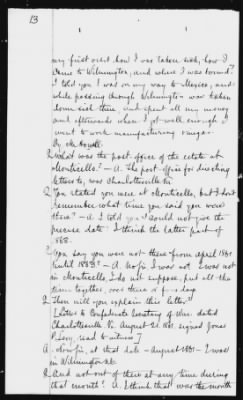 13
my first oath how I was taken sick, how I
came to Wilmington, and where I was bound?
I told you I was on my way to Mexico, and
while passing through Wilmington was taken
down sick there, and spent all my money
and afterwards when I got well enough I
went to work manufacturing vinegar.
By Mr. Howell.
Q. What was the post office of the estate at
Monticello? — A. The post office for directing
letters to, was Charlottesville Va.
Q. You stated you were at Monticello, but I don't
remember what time you said you were
there? — A. I told you I could not give the
precise date. I think the latter part of
1862.
Q. You say you were not there from April 1861
until 1862? — A. No sir I was not. I was not
in Monticello, I do not suppose, put all the
time together, over three or four days
Q. Then will you explain this letter?
[Letter to Confederate Secretary of War dated
Charlottesville Va. August 21. 1861 signed Jonas
P. Levy, read to witness]
A. No sir, at that date - August 1861 - I was
in Wilmington.
Q. And not out of there at any time during
that month? A. I think that was the month